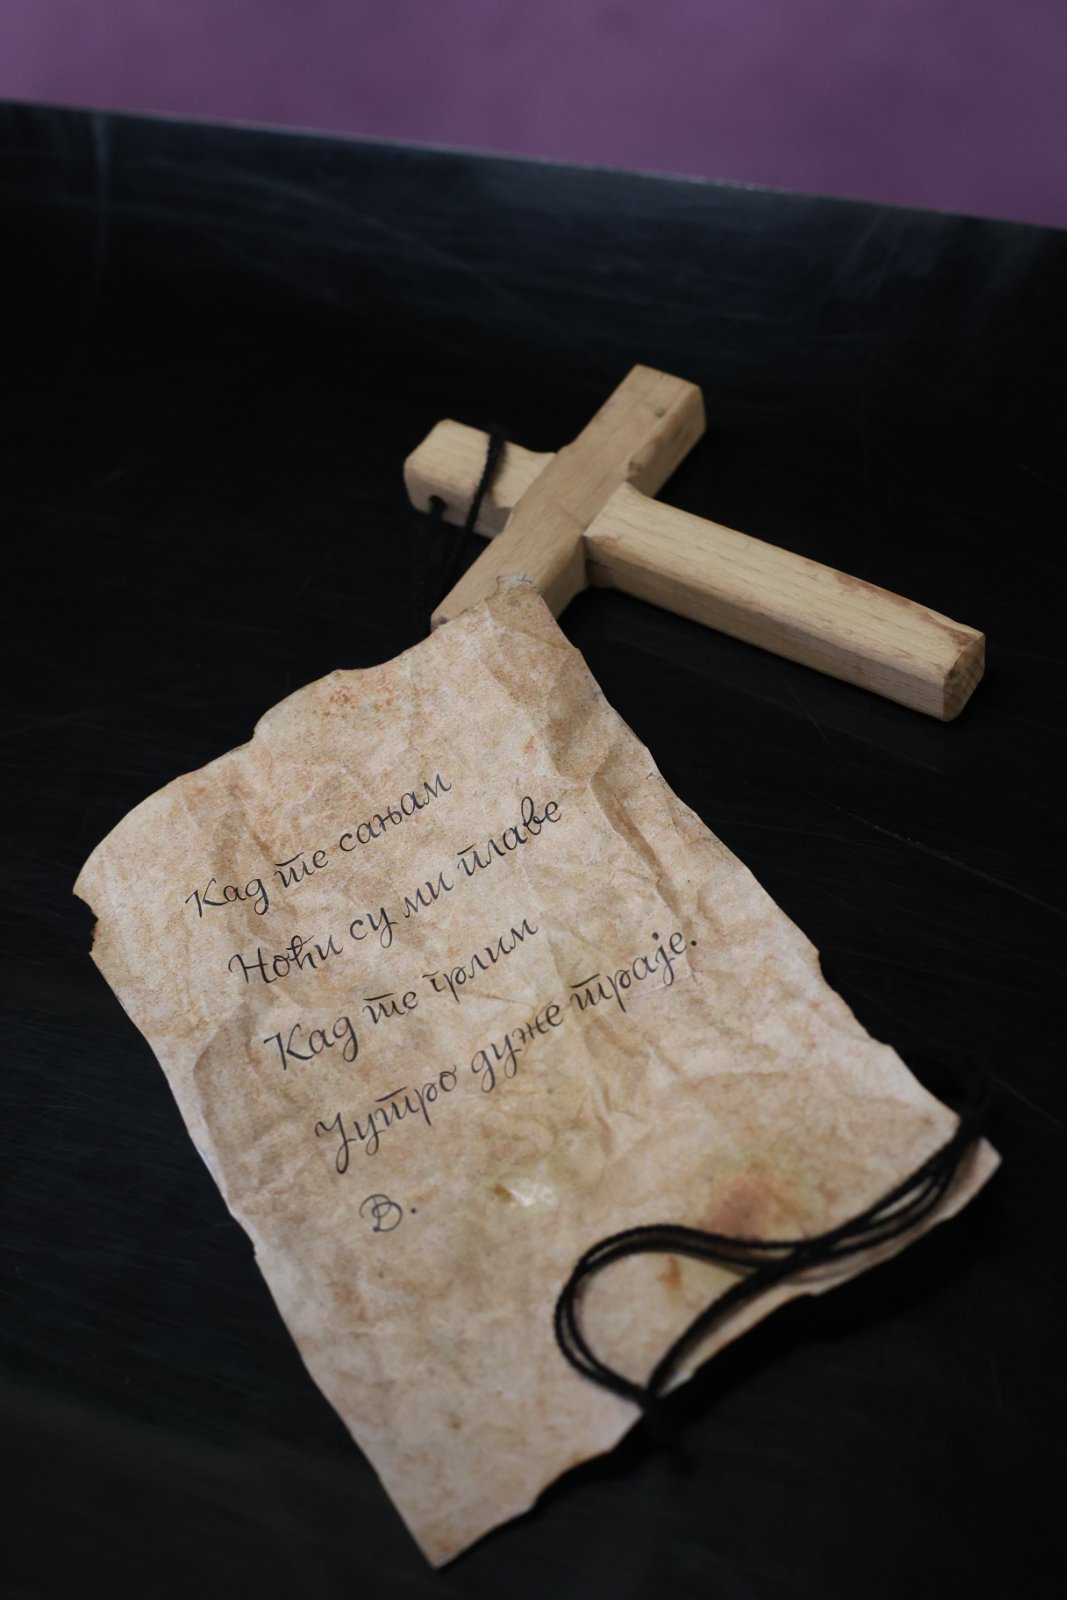 Кад те сањам
Ноћи су ми плаве
Кад те грлим
Јутро дуже траје.
В.